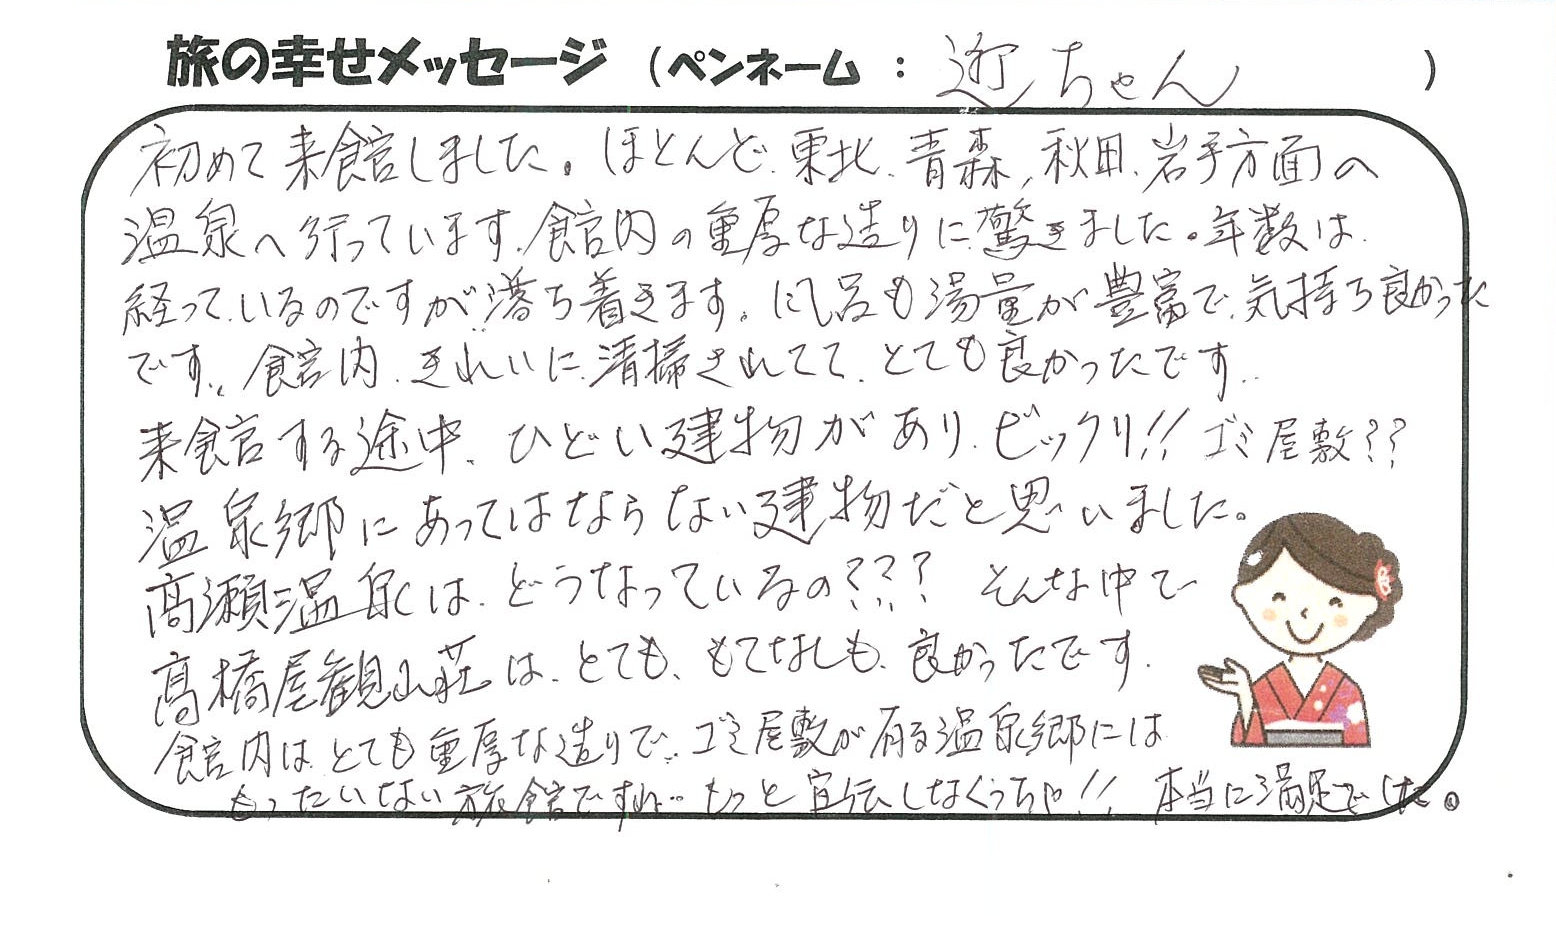 旅の幸せメッセージ (ペンネーム : 近ちゃん )
初めて来館しました。ほとんど、東北、青森、秋田、岩手方面の
温泉へ行っています。館内の重厚な造りに驚きました。年数は
経っているのですが落ち着きます。風呂も湯量が豊富で、気持ち良かった
です。館内、きれいに清掃されてて、とても良かったです。
来館する途中、ひどい建物があり、ビックリ!! ゴミ屋敷??
温泉郷にあってはならない建物だと思いました。
高瀬温泉は、どうなっているの??? そんな中で
高橋屋観山荘は、とても、もてなしも、良かったです。
館内はとても重厚な造りで、ゴミ屋敷が有る温泉郷には
もったいない旅館ですね… もっと宣伝しなくっちゃ!! 本当に満足でした。